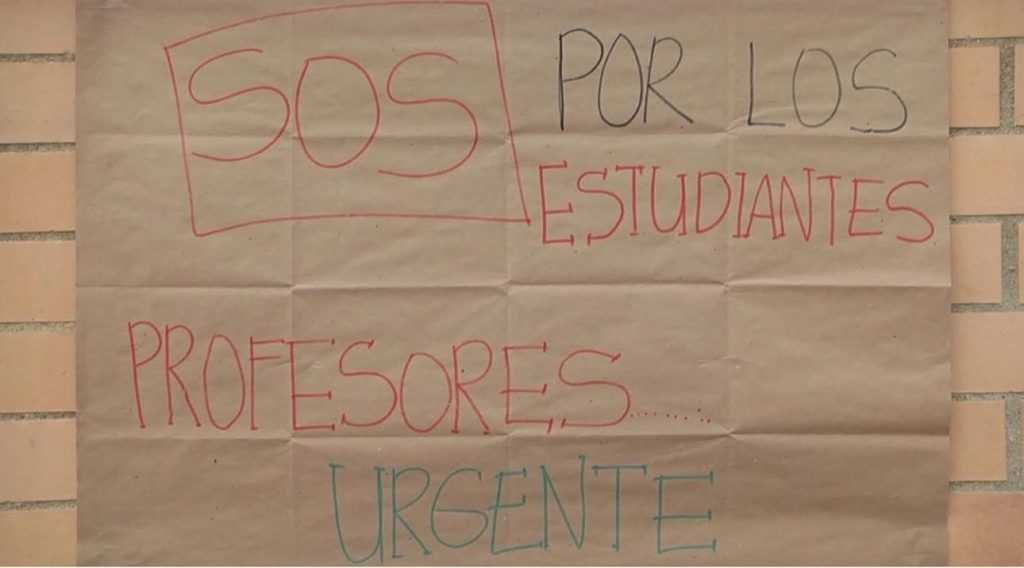 SOS POR LOS
ESTUDIANTES
PROFESORES........
URGENTE